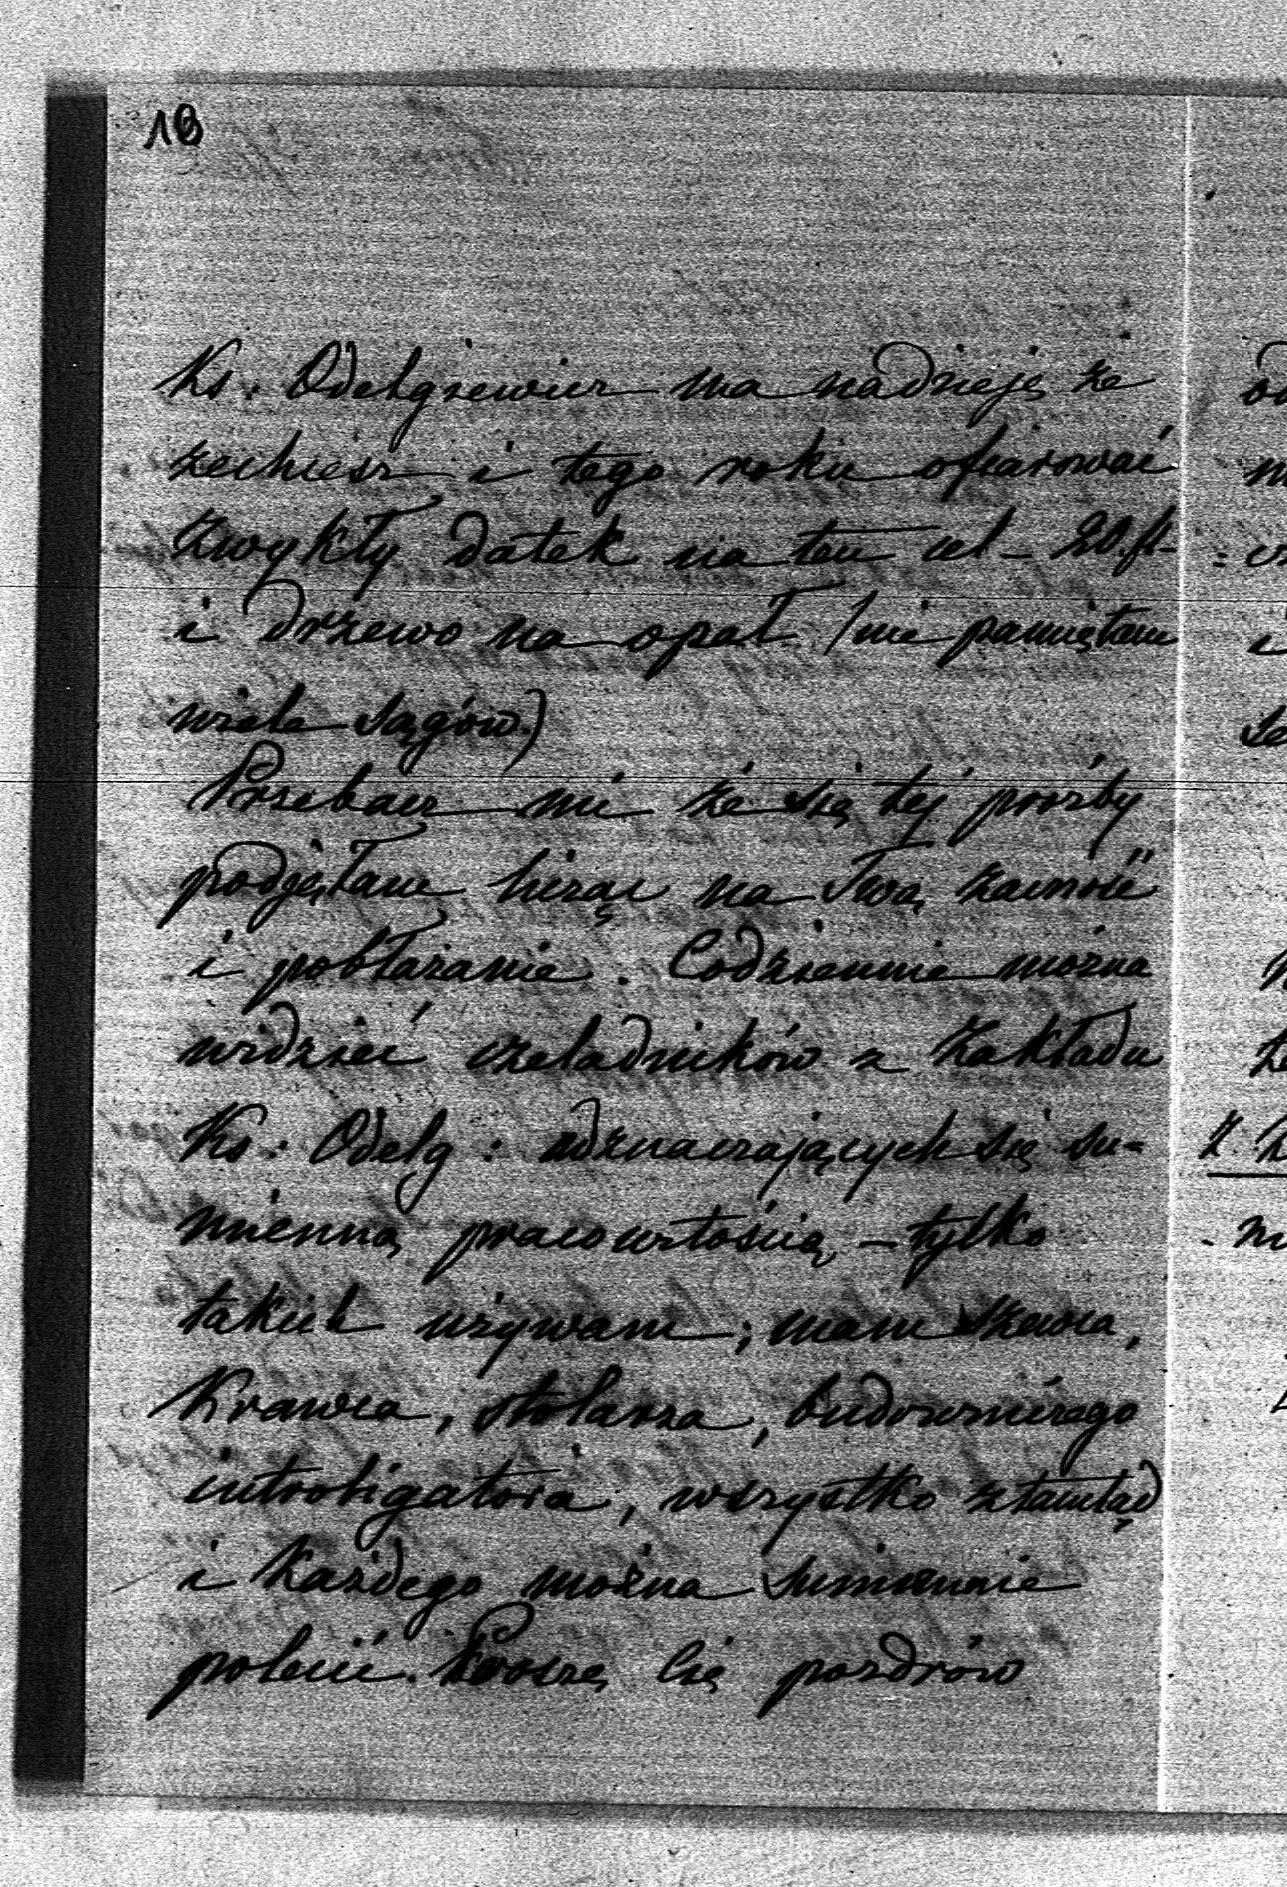 18
Ks. Odelgiewicz ma nadzieję że
zechcesz i tego roku ofiarować
zwykły datek na ten cel – 20.fl –
i drzewo na opał. /nie pamiętam
wiele sągów.)
Przebacz mi że się tej prośby
podjęłam licząc na Twą zacność
i pobłażanie. Codziennie można
widzieć czeladników z Zakładu
Ks: Odelg: odznaczających się su=
mienną pracowitością, – tylko
takich używam; mam szewca,
Krawca, stolarza, budowniczego
introligatora, wszystko ztamtąd
i każdego można sumiennie
polecić. Proszę Cię pozdrów